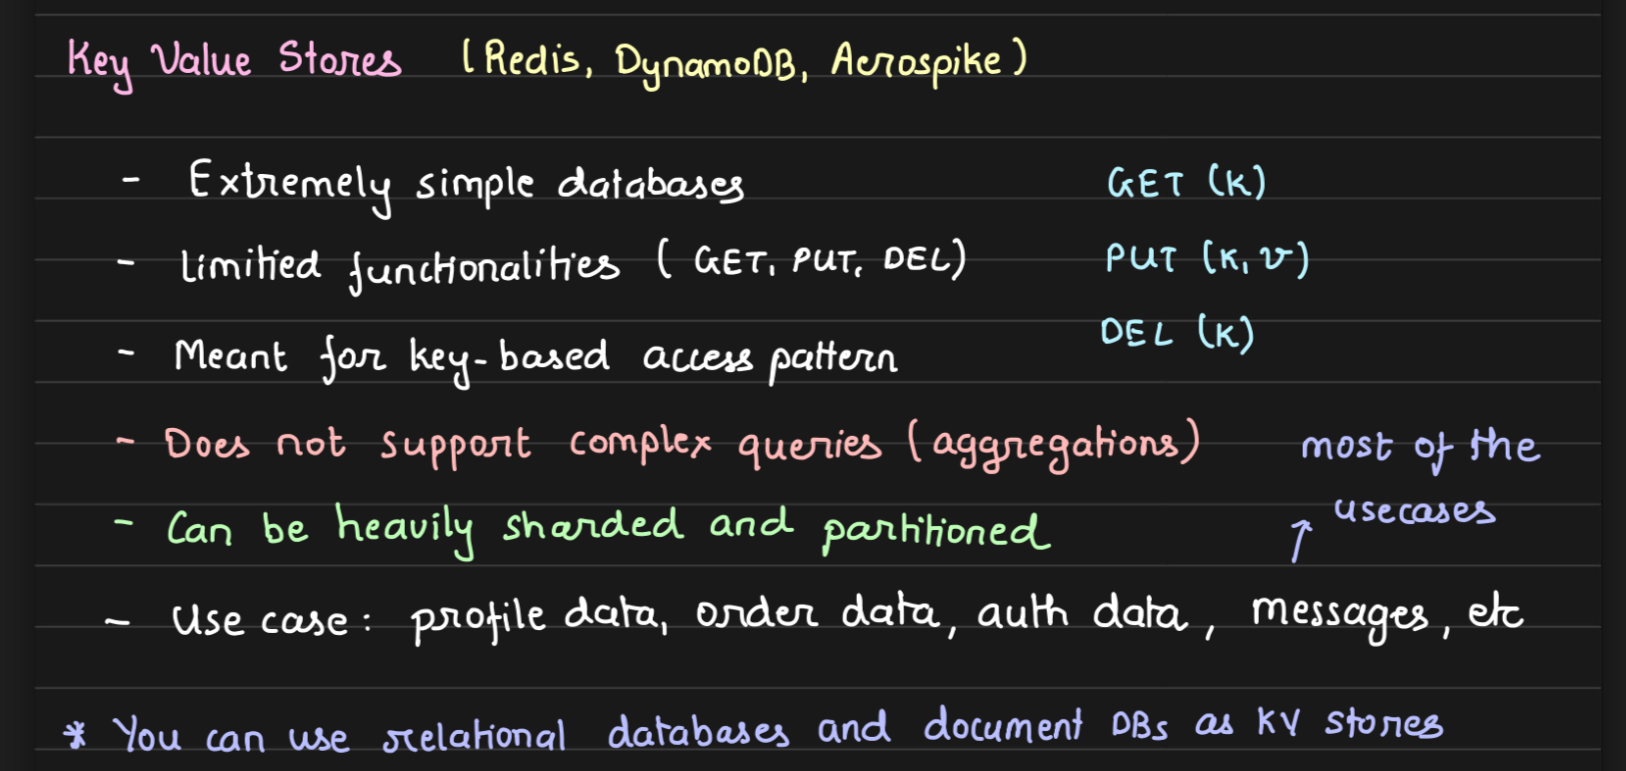 Key Value Stores (Redis, DynamoDB, Aerospike)
- Extremely simple databases GET (K)
- Limitied functionalities (GET, PUT, DEL) PUT (K, v)
- Meant for key-based access pattern DEL (K)
- Does not support complex queries (aggregations) most of the
- Can be heavily sharded and partitioned ↑ usecases
- Use case: profile data, order data, auth data, messages, etc
* You can use relational databases and document DBs as KV stores